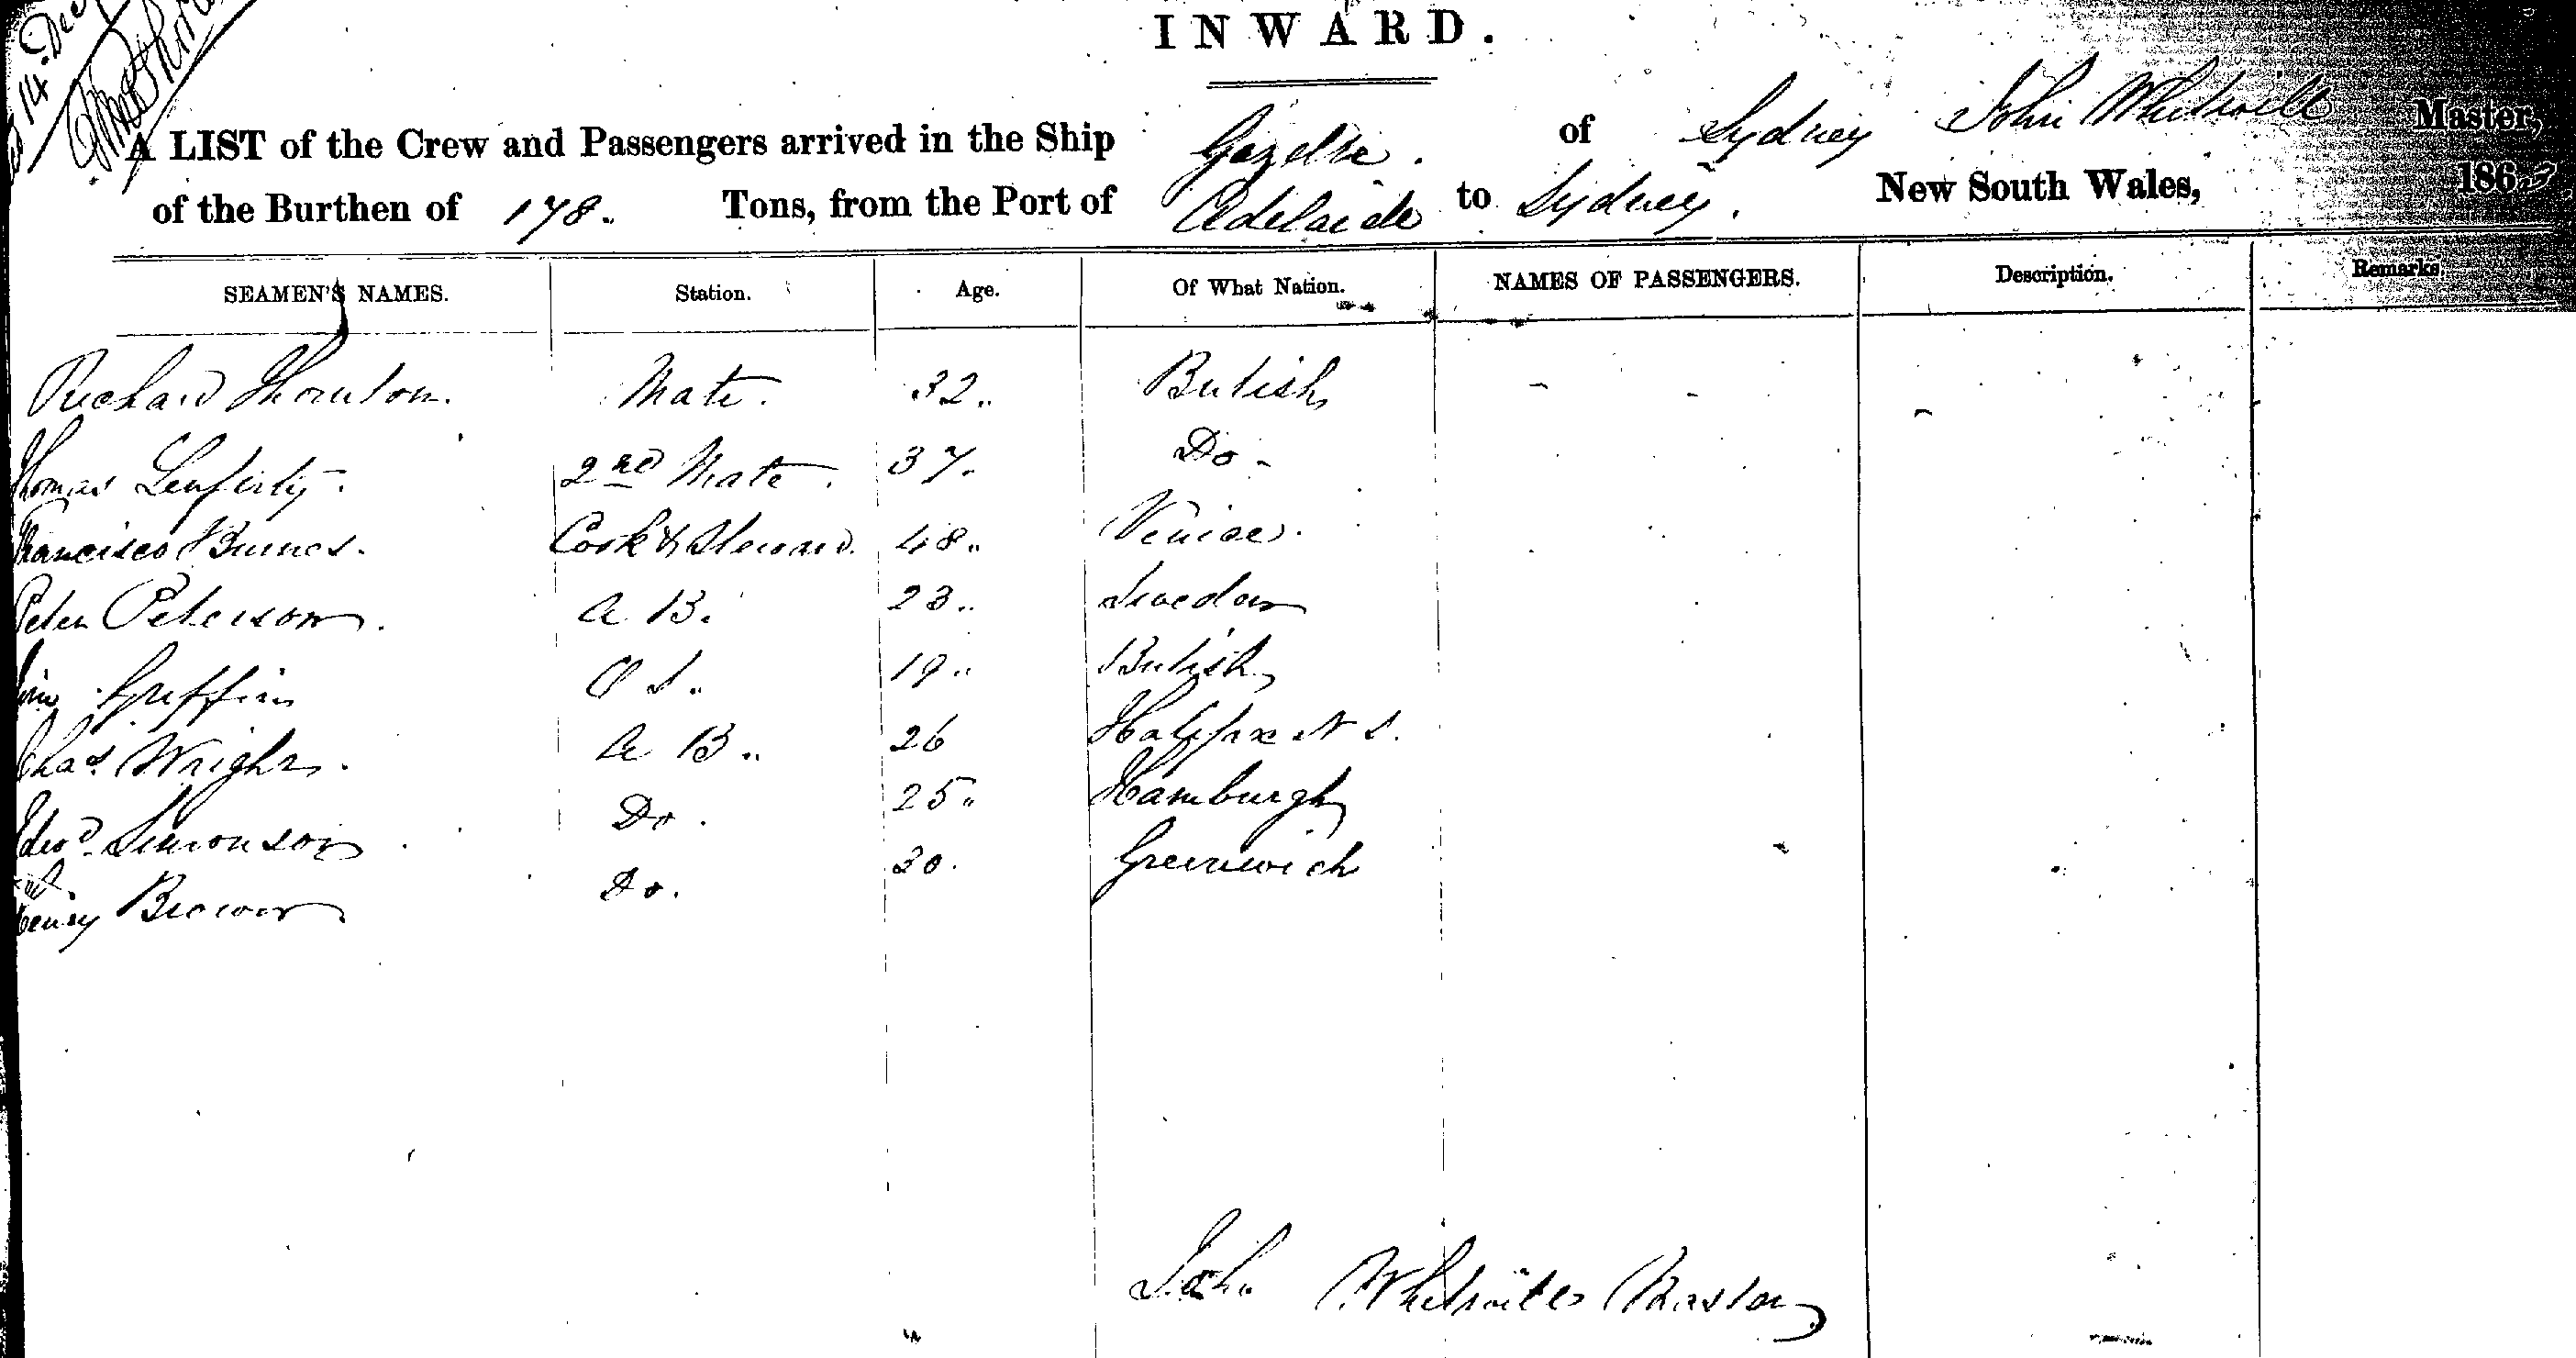 14 Dec
INWARD.
A LIST of the Crew and Passengers arrived in the Ship Gazelle. of Sydney John Whitwill Master,
of the Burthen of 178. Tons, from the Port of Adelaide to Sydney. New South Wales, 1863
SEAMEN'S NAMES. Station. Age. Of What Nation. NAMES OF PASSENGERS. Description. Remarks
Richard Thornton. Mate. 32. British - - -
Thomas 2nd Mate. 37. Do -
Francisco Cook & Steward. 48. Venice.
Peter Peterson. A B. 23. Sweden
Griffin O S. 19. British
Chas. Wright. A B. 26 Halifax N S.
Edwd. Simonson Do. 25. Hamburgh
Henry Brown Do. 30. Greenwich
John Whitwill Master